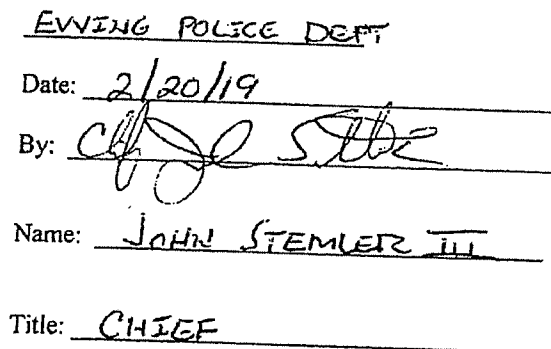 EWING POLICE DEPT
Date: 2/20/19
By:
Name: JOHN STEMLER III
Title: CHIEF